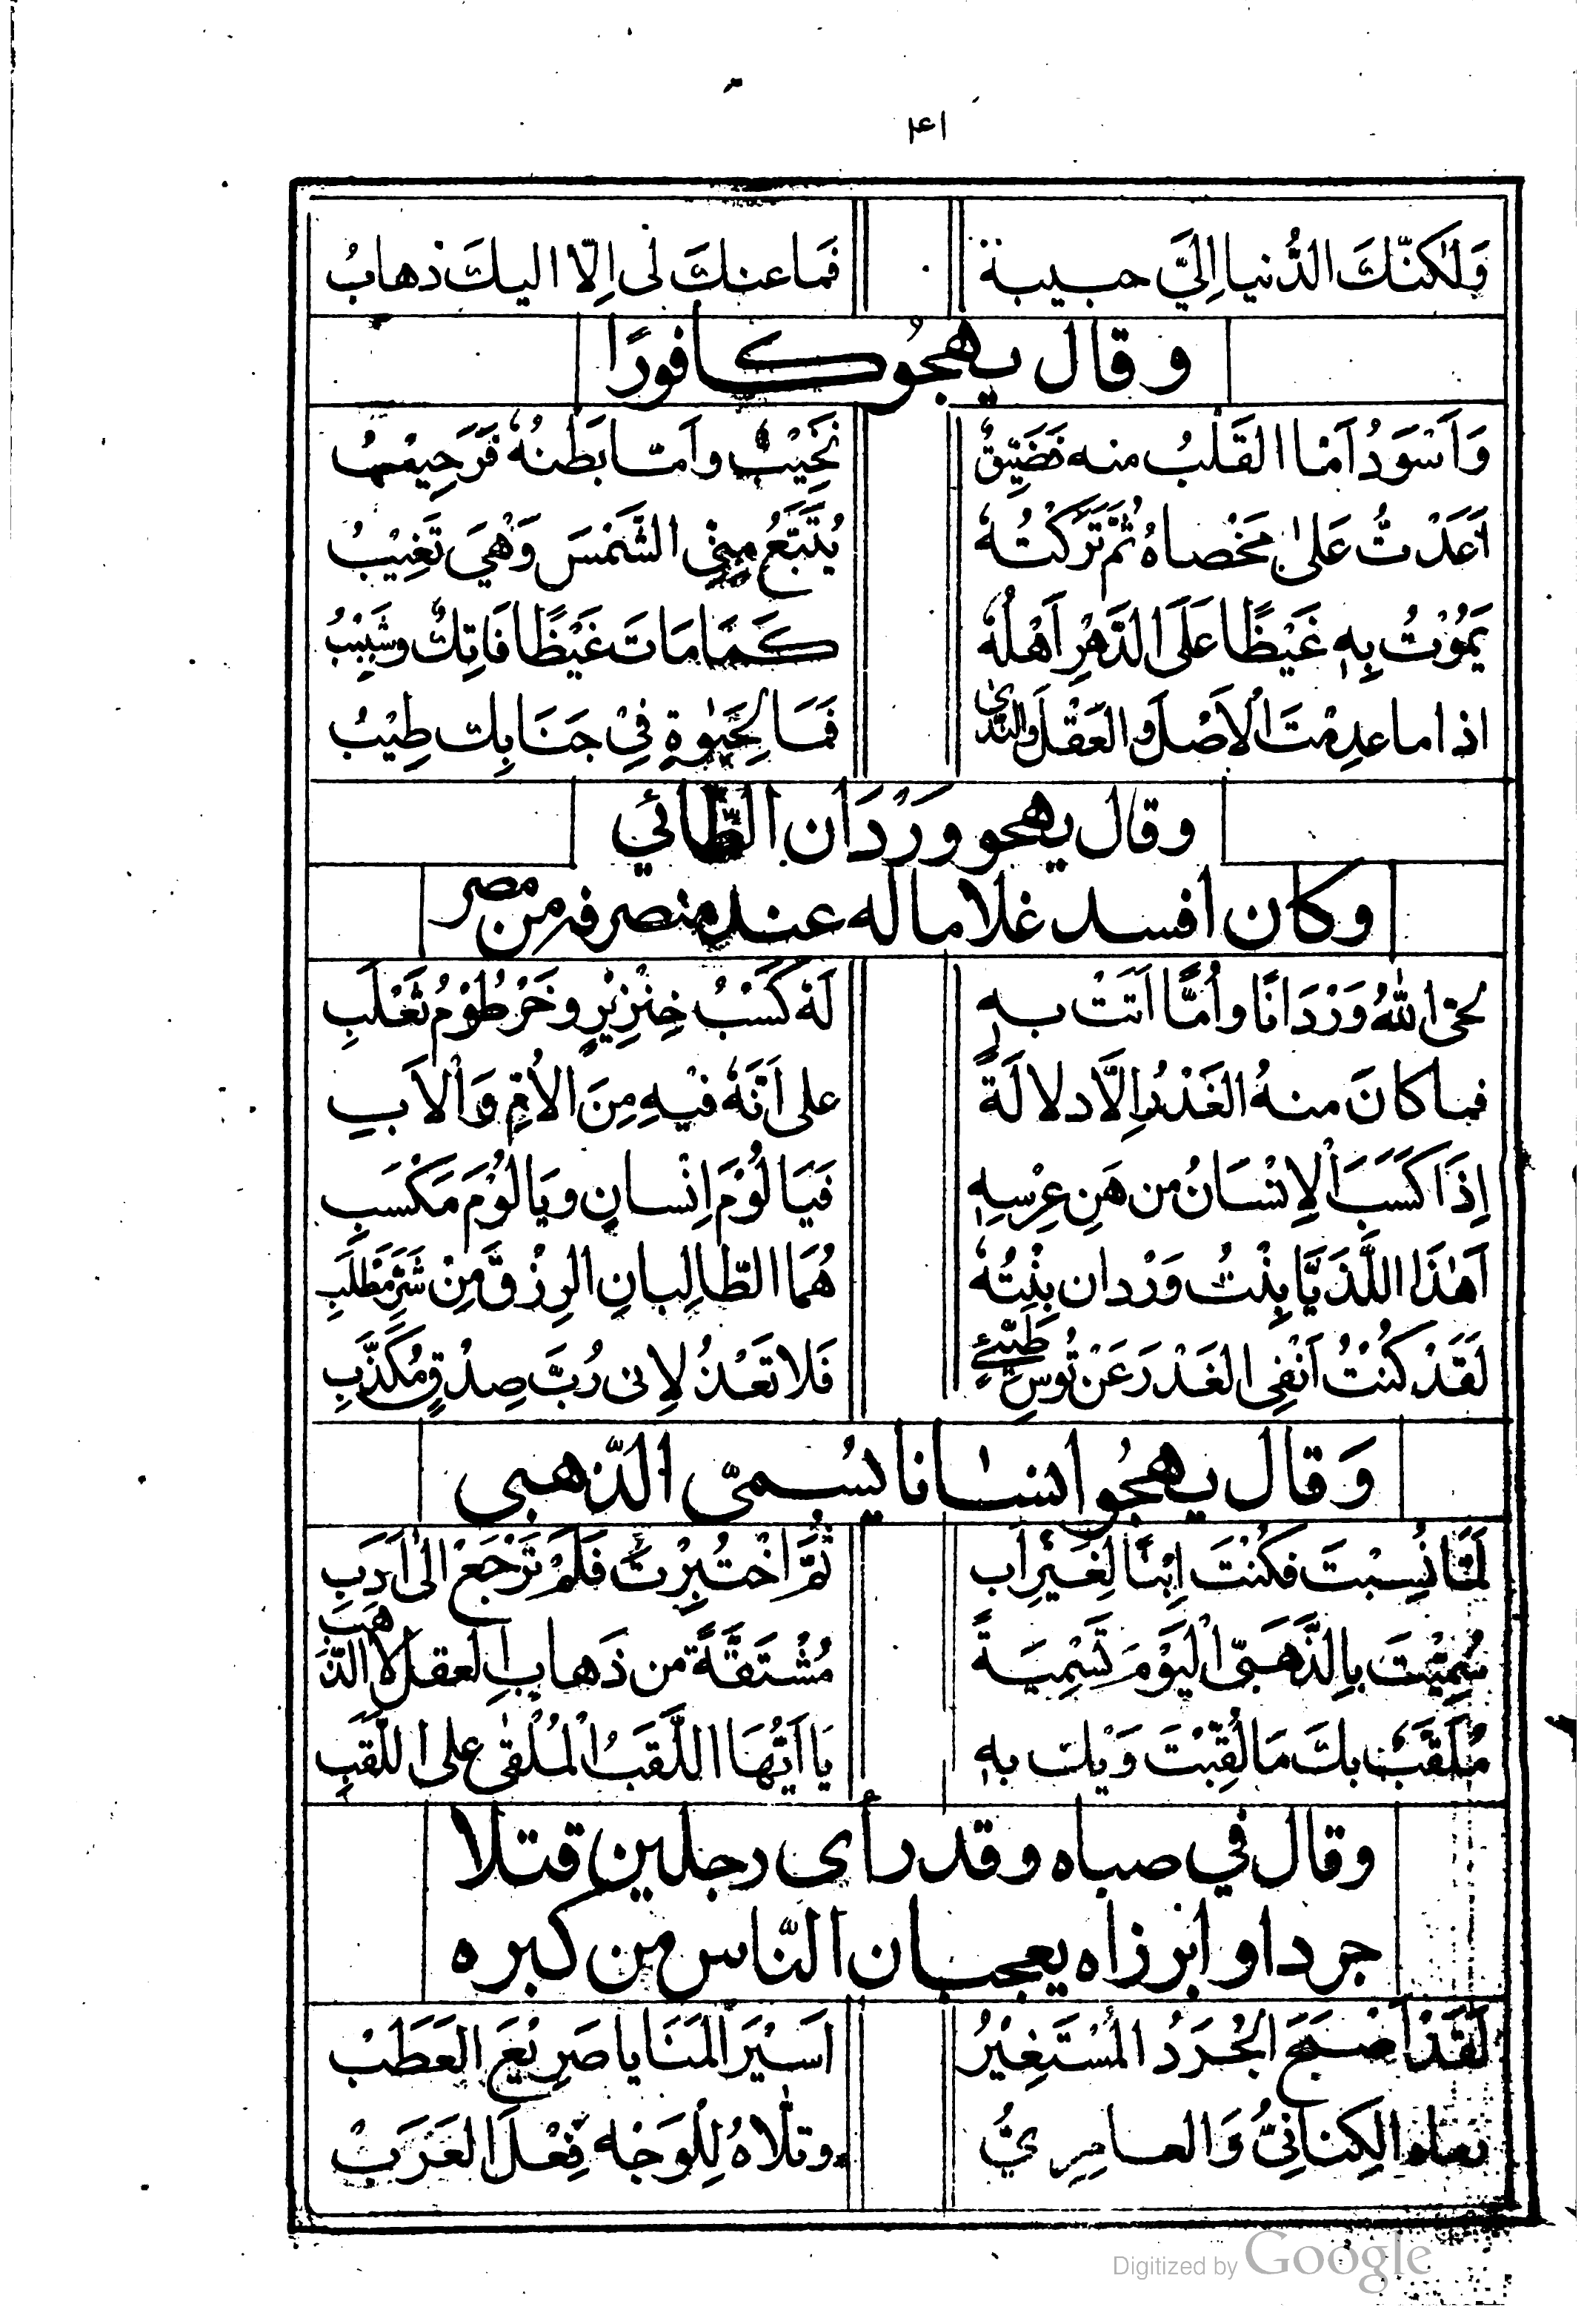 ٤١
وَلٰكنّكَ الدُّنيا اِليَّ حبيبة فَما عنكَ لى اِلّا اليكَ ذهابُ
وقال يهجُو كافورًا
وَاَسْوَدُ اَمّا القَلْبُ منه فَضَيِّقٌ نَخِيْبٌ واَمّا بَطْنُهُ فَرَحِيْبُ
اَعَدْتُّ عَلىٰ مَخْصاهُ ثُمَّ تَرَكْتُهُ يُتَبَّعُ مِنِّى الشَّمْسَ وَهْيَ تَغِيْبُ
يَمُوْتُ بِهٖ غَيْظًا عَلَى الدَّهْرِ اَهْلُهُ كَمَا مَاتَ غَيْظًا فَاتِكٌ وشَبِيْبُ
اذا ما عدِمْتَ الْاَصْلَ والعَقْلَ والنَّدىٰ فَمَا لِحَيٰوةٍ فِيْ جَنَابِك طِيْبُ
وقال يهجو وَرْدَان الطّائي
وكان افسد غلاما له عند منصرفه من مصر
لحى اللهُ وَرْدَانًا واُمًّا اَتَتْ بهٖ لَهُ كَسْبُ خِنْزِيْرٍ وخَرْطُوْمُ ثَعْلَبِ
فما كانَ منهُ الغَدْرُ اِلَّا دلالَةً على اَنَّهُ فيْهِ مِنَ الْاُمِّ وَالْاَبِ
اِذَا كَسَبَ الْاِنْسَانُ من هَنِ عِرْسِهٖ فَيَا لُؤْمَ اِنْسانٍ ويَا لُؤْمَ مَكْسَبِ
اَهٰذَا اللَّذَيَّا بِنْتُ وَرْدان بِنْتُهُ هُمَا الطّالِبانِ الرِزْقَ مِنْ شَرِّ مَطْلَبِ
لَقَدْ كُنْتُ اَنْفِى الغَدْرَ عَنْ تُوسِ طَيِّئٍ فَلا تَعْذُلانى رُبَّ صِدْقٍ مُكَذَّبِ
وَقال يهجُو انسانا يسُمىّ الذّهبى
لَمّا نُسِبْتَ فكُنْتَ اِبْنًا لِغَيْرِ اَب ثُمَّ اخْتُبِرْتَ فَلَمْ تَرْجَعْ الىٰ اَدَبِ
سُمِّيْتَ بِالذَّهَبىّ الْيَوْمَ تَسْمِيَةً مُشْتَقَّةً من ذَهابِ العقل لا الذَّهَبِ
مُلَقَّبٌ بكَ مَا لُقِّبْتَ وَيْك بهٖ يَا اَيُّهَا اللَّقَبُ الْمُلْقٰى على اللَّقَبِ
وقال في صباه وقد رأى رجلين قتلا
جردا وابرزاه يعجبان النّاس من كبره
لَقَدْ اَصْبَحَ الجُرَدُ الْمُسْتَغِيْرُ اَسيْرَ الْمَنَايا صَرِيْعَ العَطَبْ
رماه الكِنانِيُّ وَالعامِرِيُّ وتلّاهُ لِلْوَجْهِ فِعْلَ العَرَبْ
Digitized by Google